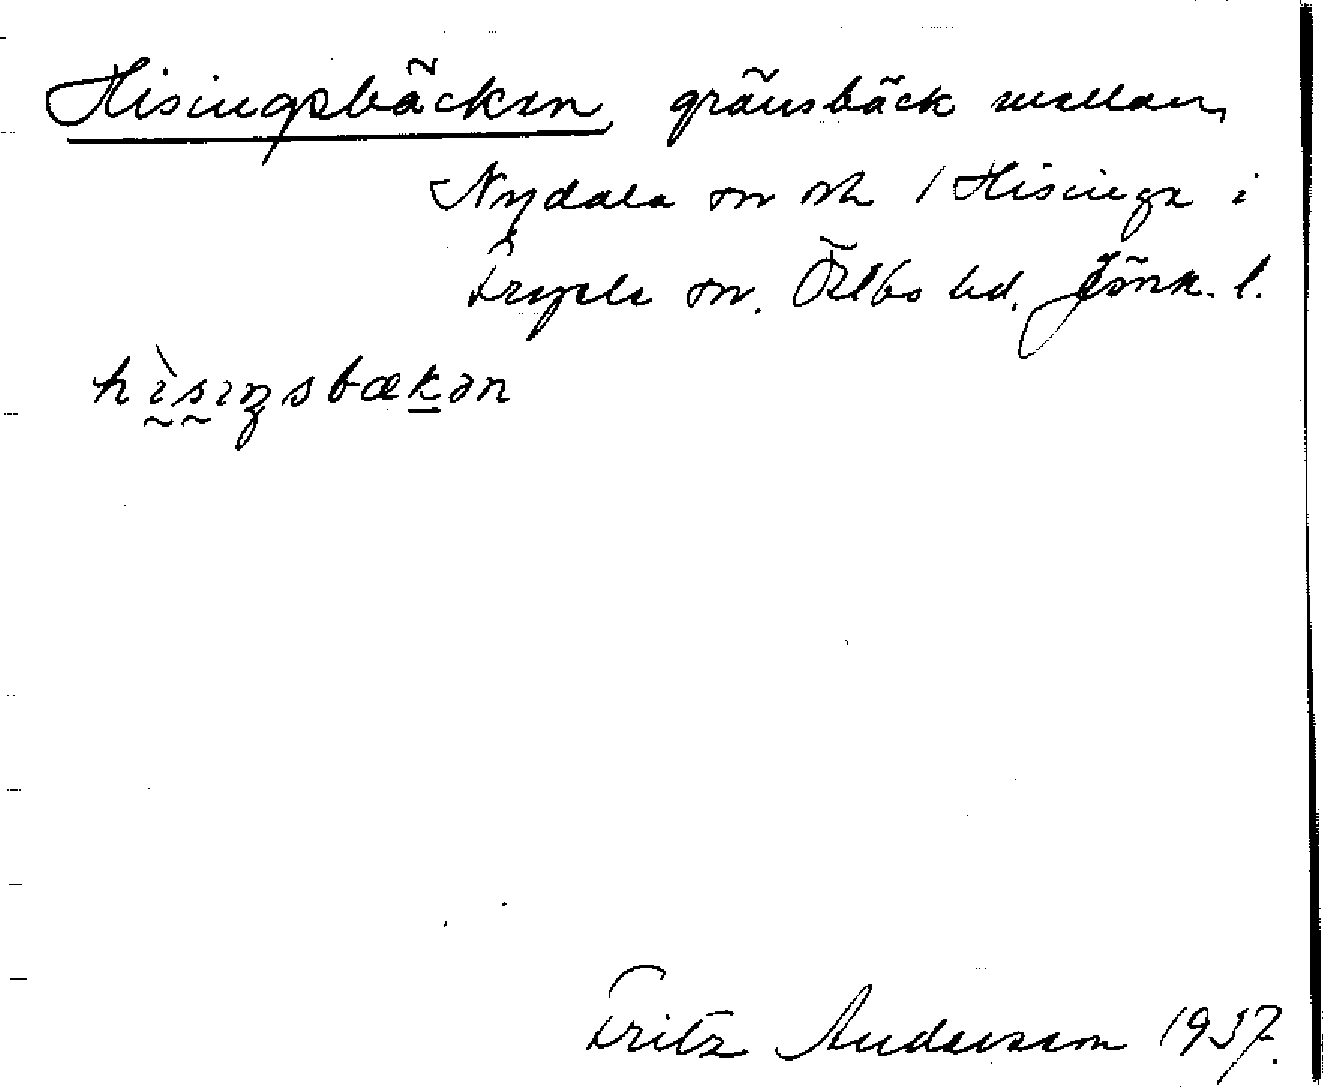 Hisingsbäcken, gränsbäck mellan
Nydala sn och / Hisinga i
Fryele sn. Östbo hd. Jönk. l.
hìsiŋsbækən
Fritz Andersson 1937.